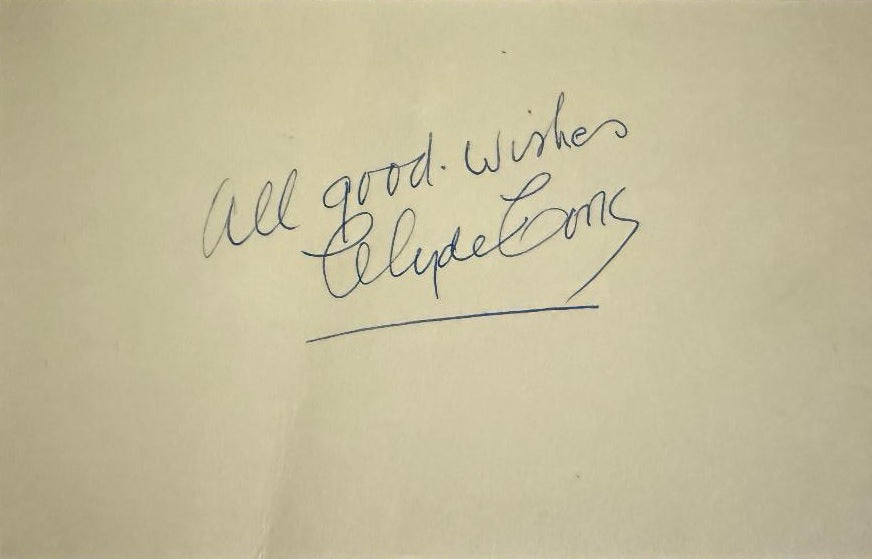 All good. wishes
Clyde